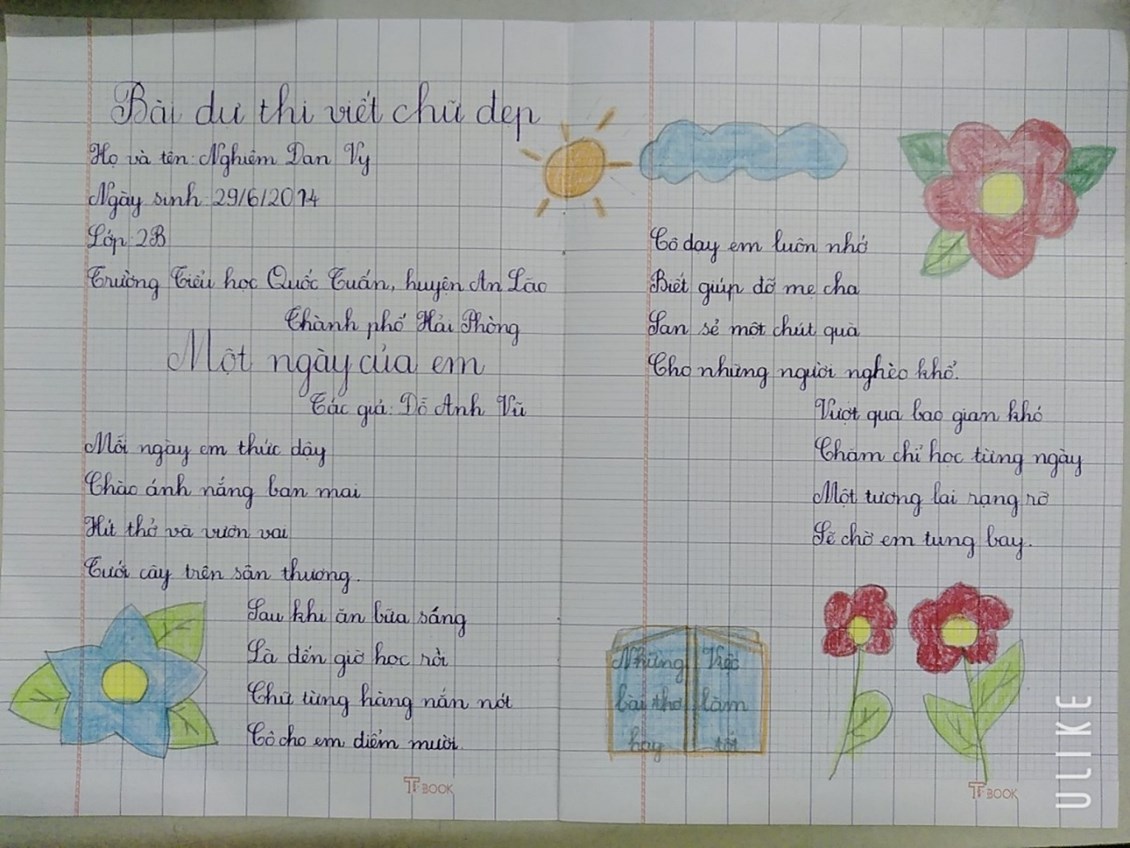 Bài dự thi viết chữ đẹp
Họ và tên: Nghiêm Đan Vy
Ngày sinh 29/6/2014
Lớp 2B
Trường Tiểu học Quốc Tuấn, huyện An Lão
Thành phố Hải Phòng
Một ngày của em
Tác giả: Đỗ Anh Vũ
Mỗi ngày em thức dậy
Chào ánh nắng ban mai
Hít thở và vươn vai
Tưới cây trên sân thượng.
Sau khi ăn bữa sáng
Là đến giờ học rồi
Chữ từng hàng nắn nót
Cô cho em điểm mười.
TT BOOK
Cô dạy em luôn nhớ
Biết giúp đỡ mẹ cha
San sẻ một chút quà
Cho những người nghèo khổ.
Vượt qua bao gian khó
Chăm chỉ học từng ngày
Một tương lai rạng rỡ
Sẽ chờ em tung bay.
Những
bài thơ
hay
Việc
làm
tốt
TT BOOK
ULIKE